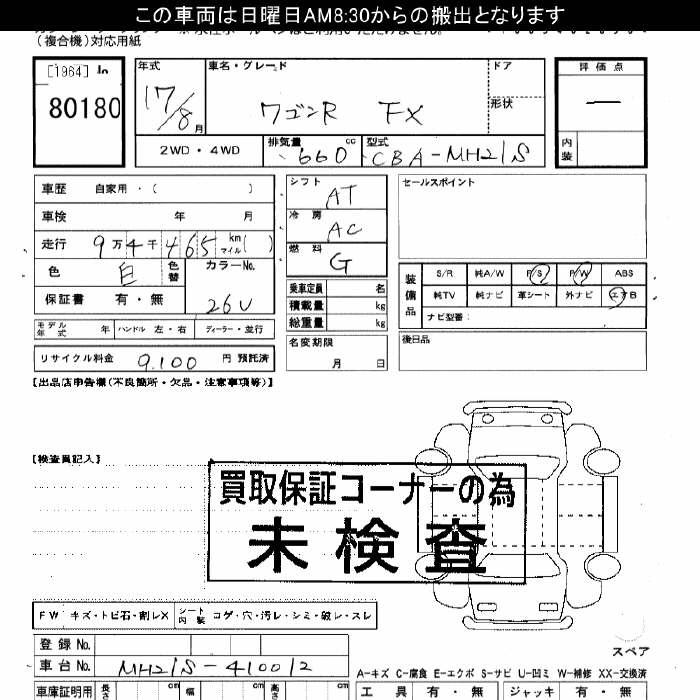 この車両は日曜日AM8:30からの搬出となります
（複合機）対応用紙
［1964］
80180
年式
17/8月
車名・グレード
ワゴンR FX
ドア
形状
評価点
—
内装
2WD・4WD
排気量 660 cc
型式 CBA-MH21S
車歴 自家用・（ ）
車検 年 月
走行 9万4千465 km マイル( )
色 白 色替
カラーNo. 26U
保証書 有・無
モデル年式 年 ハンドル 左・右 ディーラー・並行
リサイクル料金 9.100 円 預託済
シフト AT
冷房 AC
燃料 G
乗車定員 名
積載量 kg
総重量 kg
名変期限
月 日
セールスポイント
装備品
S/R 純A/W P/S P/W ABS
純TV 純ナビ 革シート 外ナビ エアB
ナビ型番：
後日品
【出品店申告欄（不良箇所・欠品・注意事項等）】
【検査員記入】
買取保証コーナーの為
未検査
FW キズ・トビ石・割レX
シート内装 コゲ・穴・汚レ・シミ・破レ・スレ
スペア
登録No.
車台No. MH21S-410012
A-キズ C-腐食 E-エクボ S-サビ U-凹ミ W-補修 XX-交換済
車庫証明用 長さ cm 幅 cm 高さ cm
工具 有・無 ジャッキ 有・無